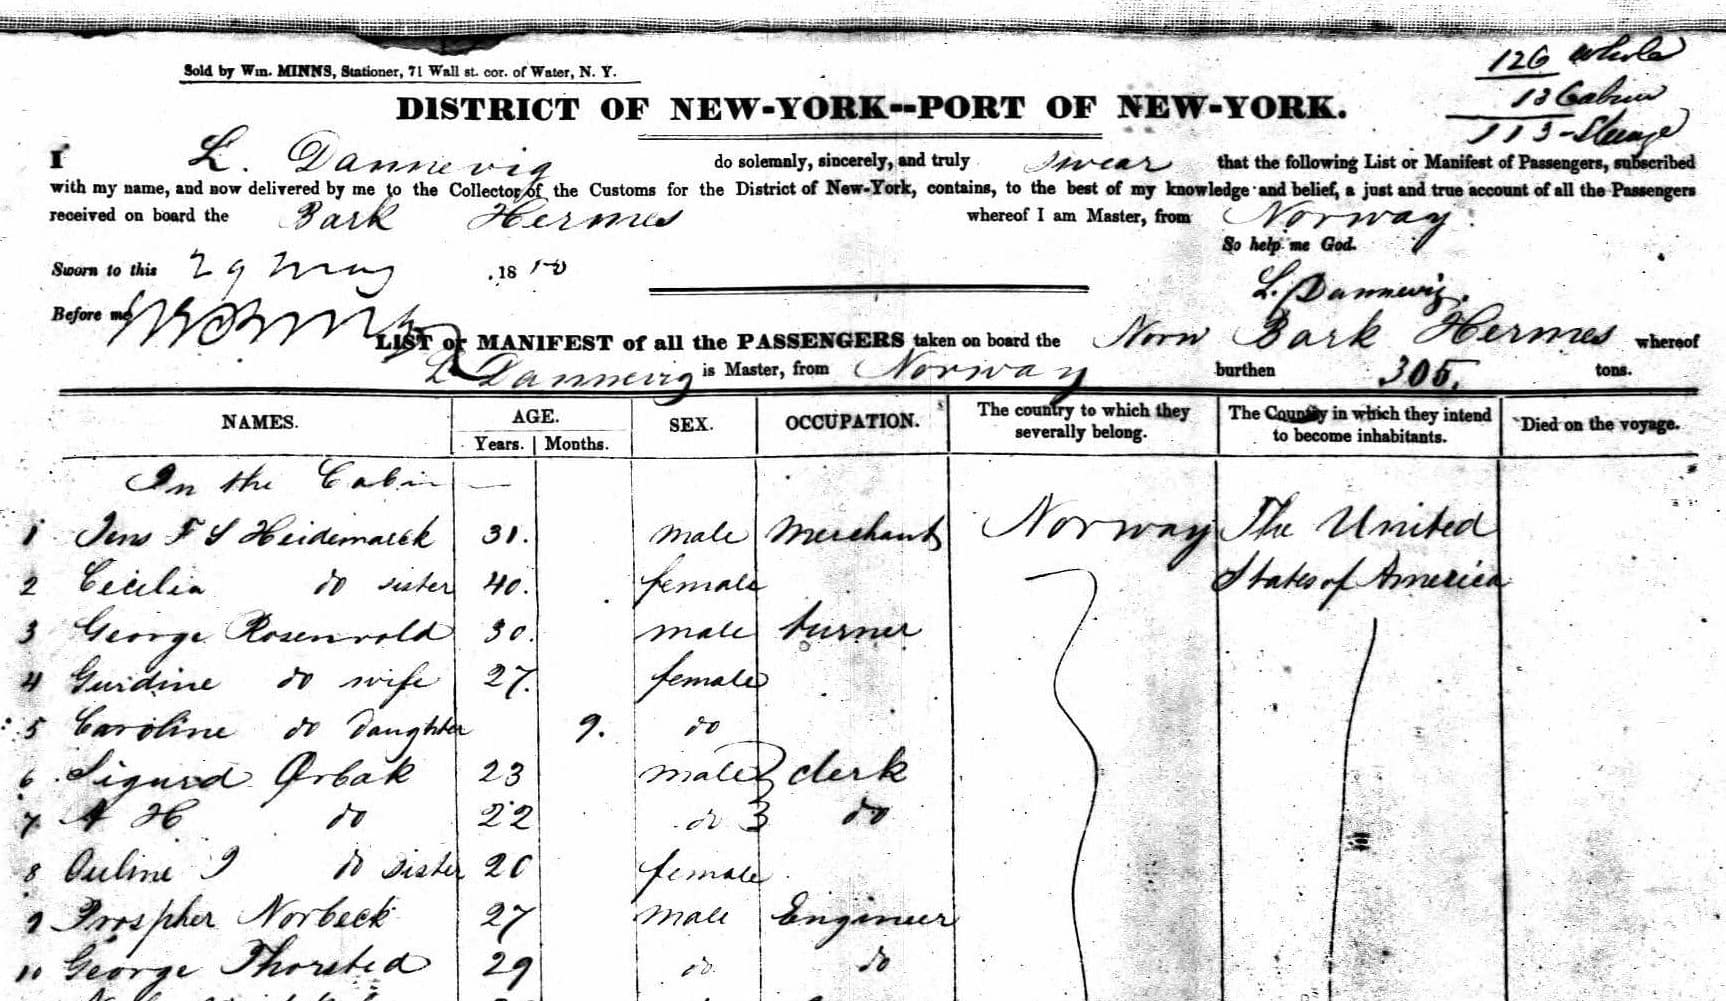 126 whole
Sold by Wm. MINNS, Stationer, 71 Wall st. cor. of Water, N. Y.
13 Cabin
DISTRICT OF NEW-YORK--PORT OF NEW-YORK.
113 - Steerage
I L. Dannevig do solemnly, sincerely, and truly swear that the following List or Manifest of Passengers, subscribed
with my name, and now delivered by me to the Collector of the Customs for the District of New-York, contains, to the best of my knowledge and belief, a just and true account of all the Passengers
received on board the Bark Hermes whereof I am Master, from Norway.
So help me God.
Sworn to this 29 May 1850
L. Dannevig.
Before me
LIST or MANIFEST of all the PASSENGERS taken on board the Norw Bark Hermes whereof
L Dannevig is Master, from Norway burthen 305. tons.
NAMES. AGE. Years. Months. SEX. OCCUPATION. The country to which they severally belong. The Country in which they intend to become inhabitants. Died on the voyage.
In the Cabin —
1 Jens F S Heidemarck 31. male Merchant Norway The United
2 Cecilia do sister 40. female States of America
3 George Rosenvold 30. male turner
4 Gurdine do wife 27. female
5 Caroline do daughter 9. do
6 Sigurd Ørbak 23 male clerk
7 A H do 22 do do
8 do sister 20 female
9 Prospher Norbeck 27 male Engineer
10 George Thorsted 29 do do